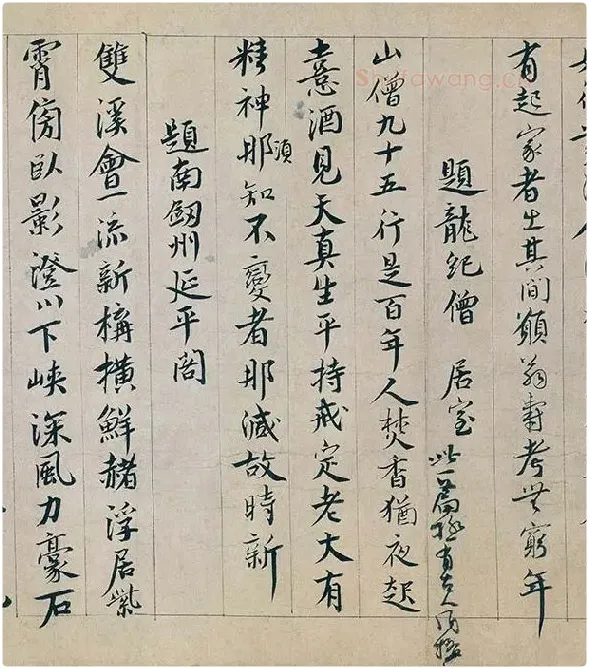 有起家者生其間願翁壽考無窮年
題龍紀僧居室 此一篇極有古人風格
山僧九十五行是百年人焚香猶夜起
憙酒見天真生平持戒定老大有
精神那須知不變者那減故時新
題南劔州延平閣
雙溪會一流新構橫鮮赭浮居紫
霄傍臥影澄川下峽深風力豪石